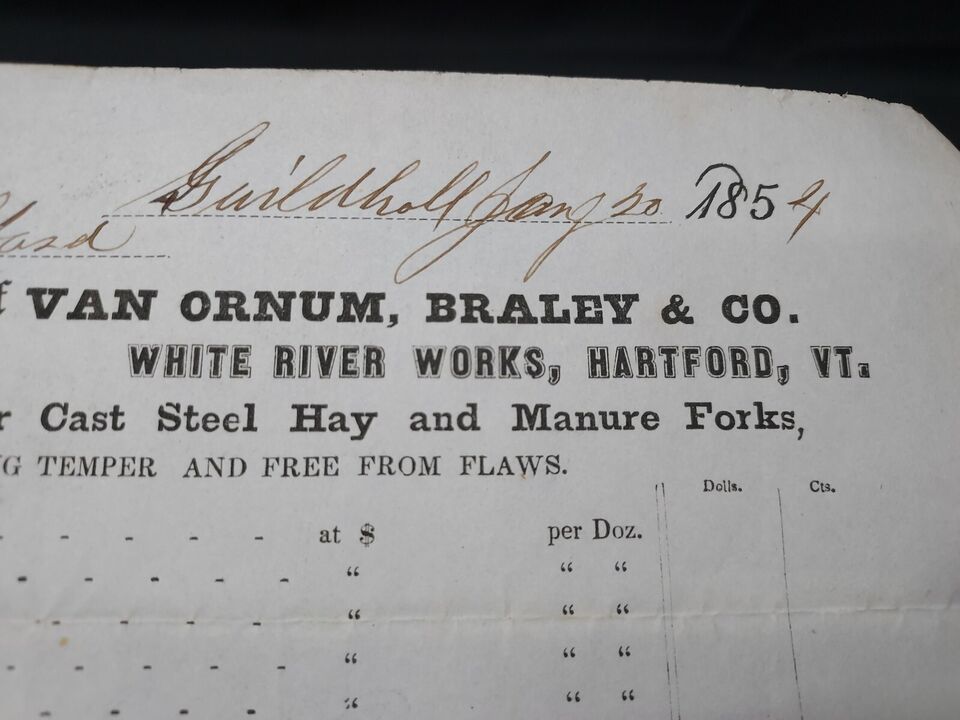 Guildhall Jany 20 1854
VAN ORNUM, BRALEY & CO.
WHITE RIVER WORKS, HARTFORD, VT.
Cast Steel Hay and Manure Forks,
TEMPER AND FREE FROM FLAWS.
Dolls. Cts.
- - - - - at $ per Doz.
- - - - - “ “ “
- - - - - “ “ “
- - - - - “ “ “
- - - - - “ “ “